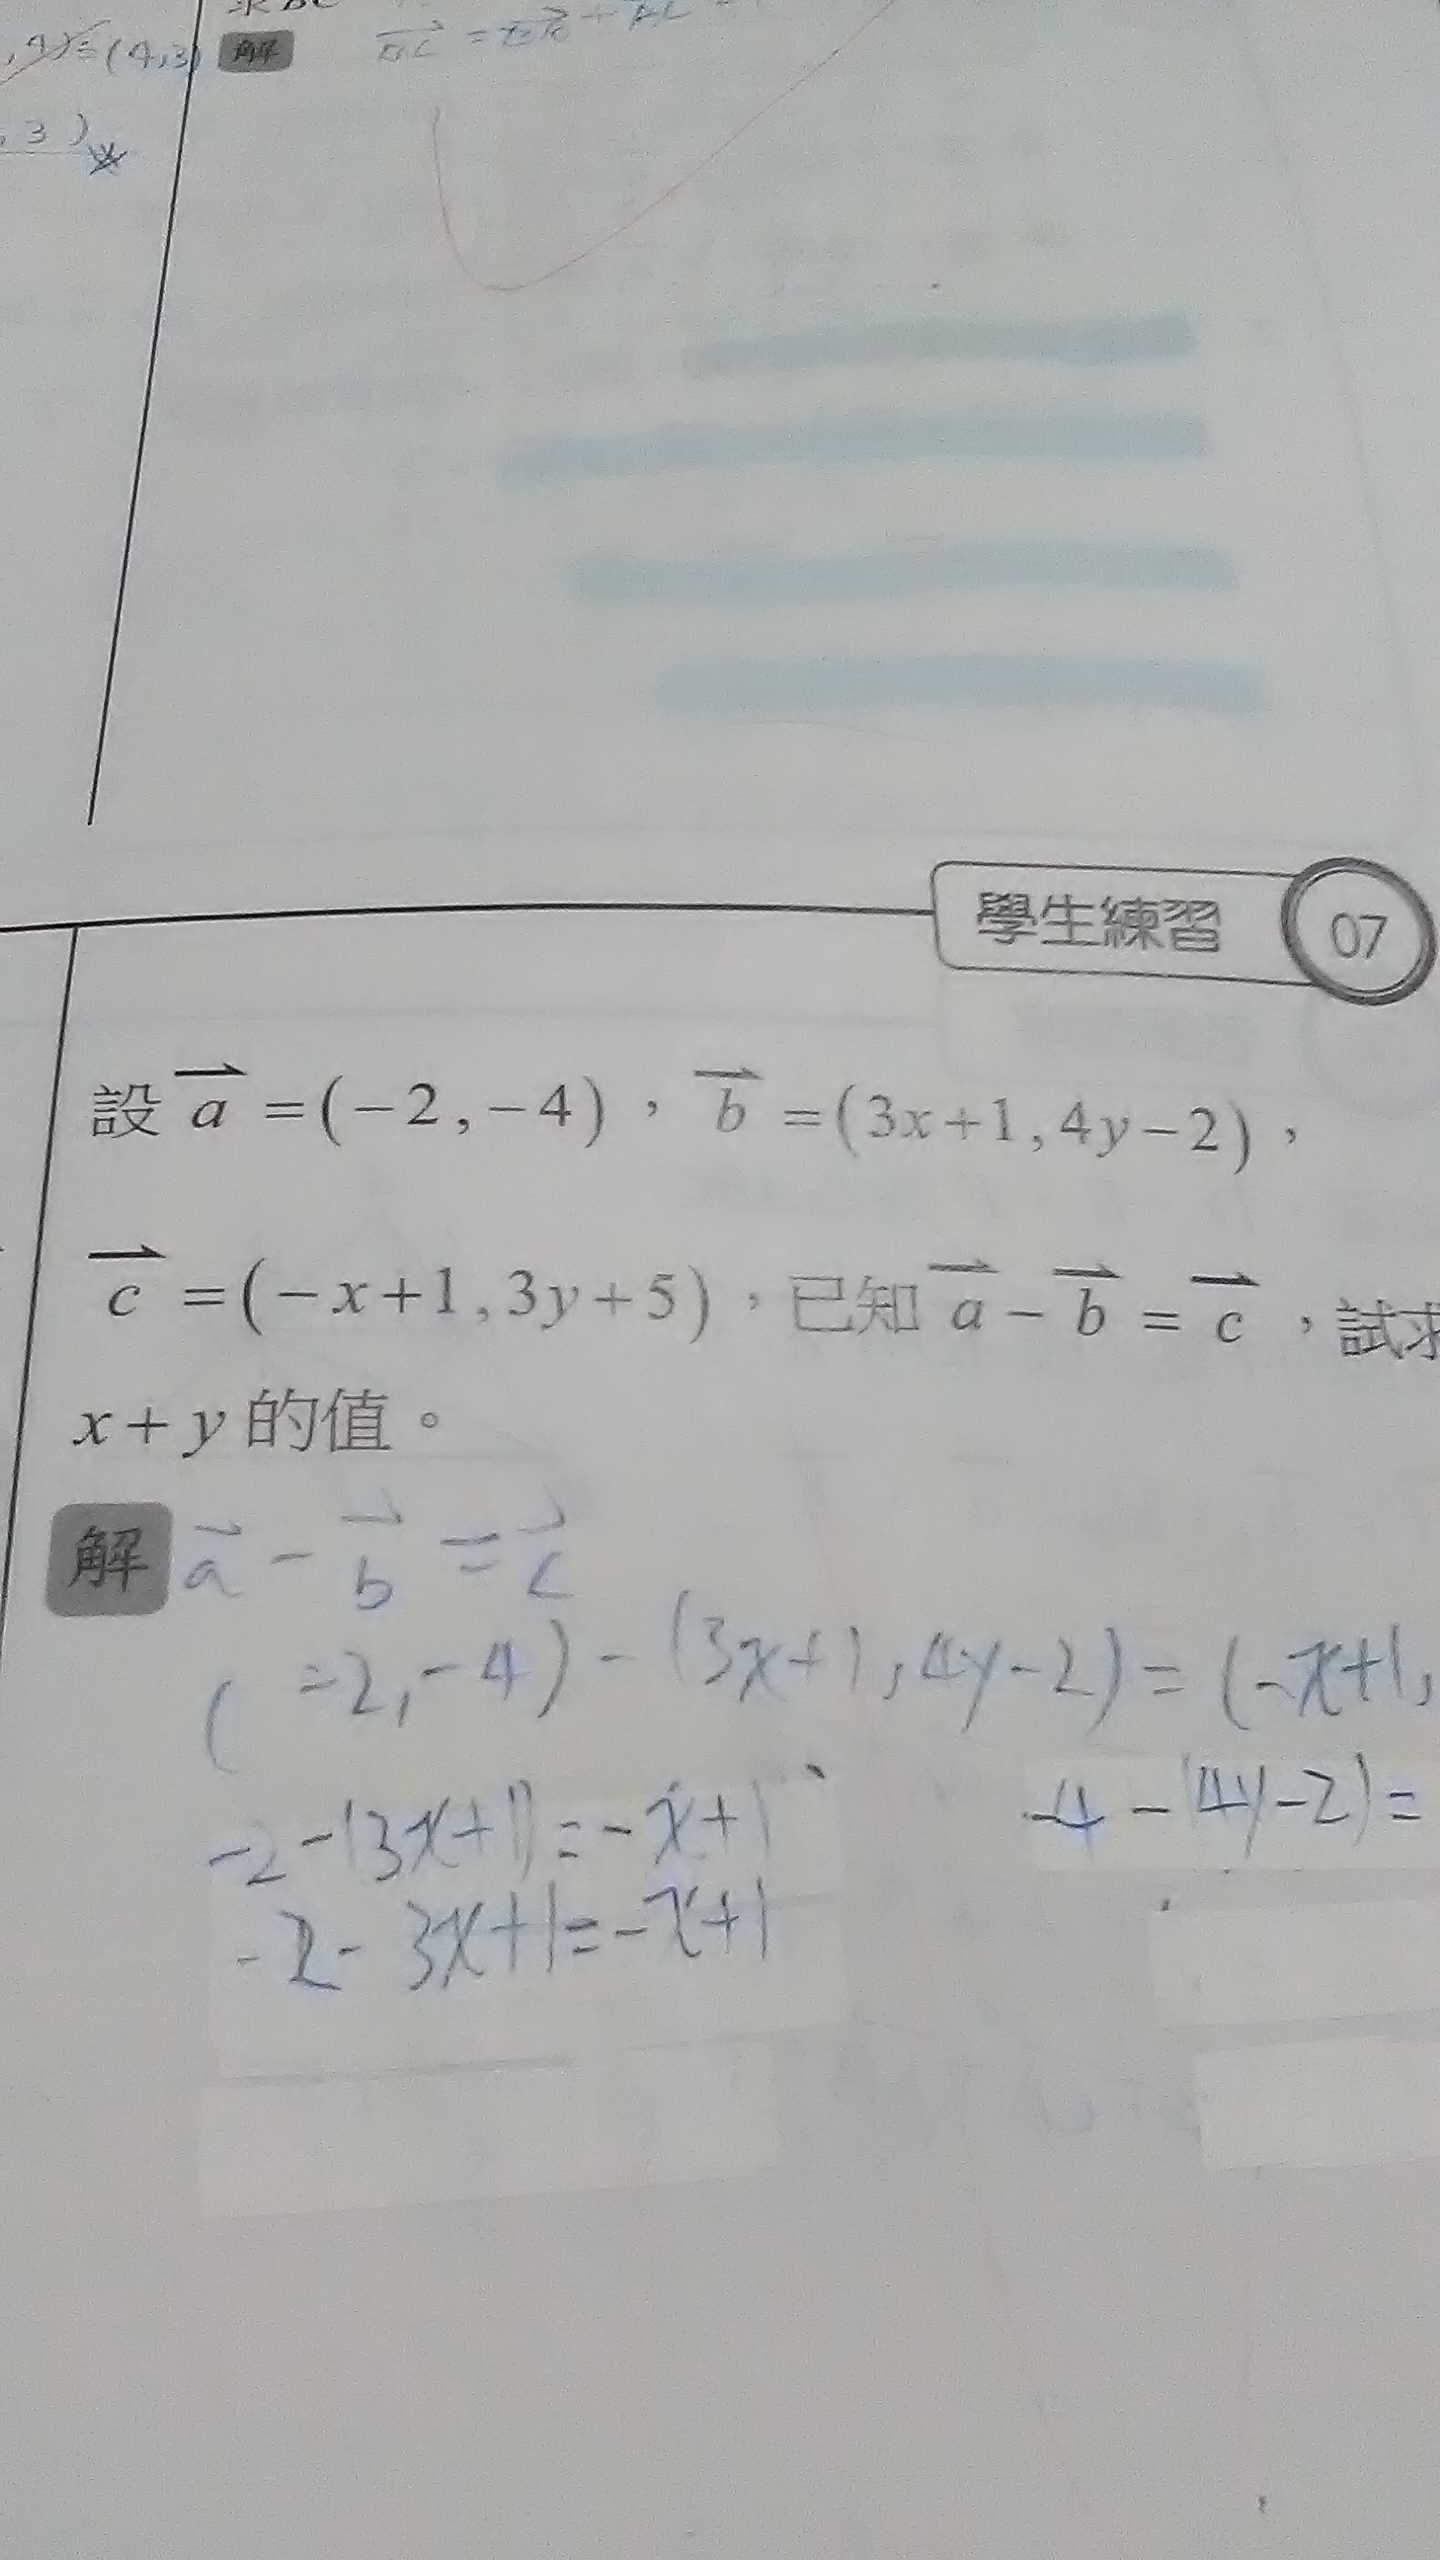 ,4)=(4,3)
解
,3)
學生練習 07
設 a⃑ =(−2,−4),b⃑ =(3x+1,4y−2),
c⃑ =(−x+1,3y+5),已知 a⃑ − b⃑ = c⃑ ,試求
x+y 的值。
解 a⃑ − b⃑ = c⃑
(−2,−4)−(3x+1,4y−2)=(−x+1,
−2−(3x+1)=−x+1 −4−(4y−2)=
−2−3x+1=−x+1